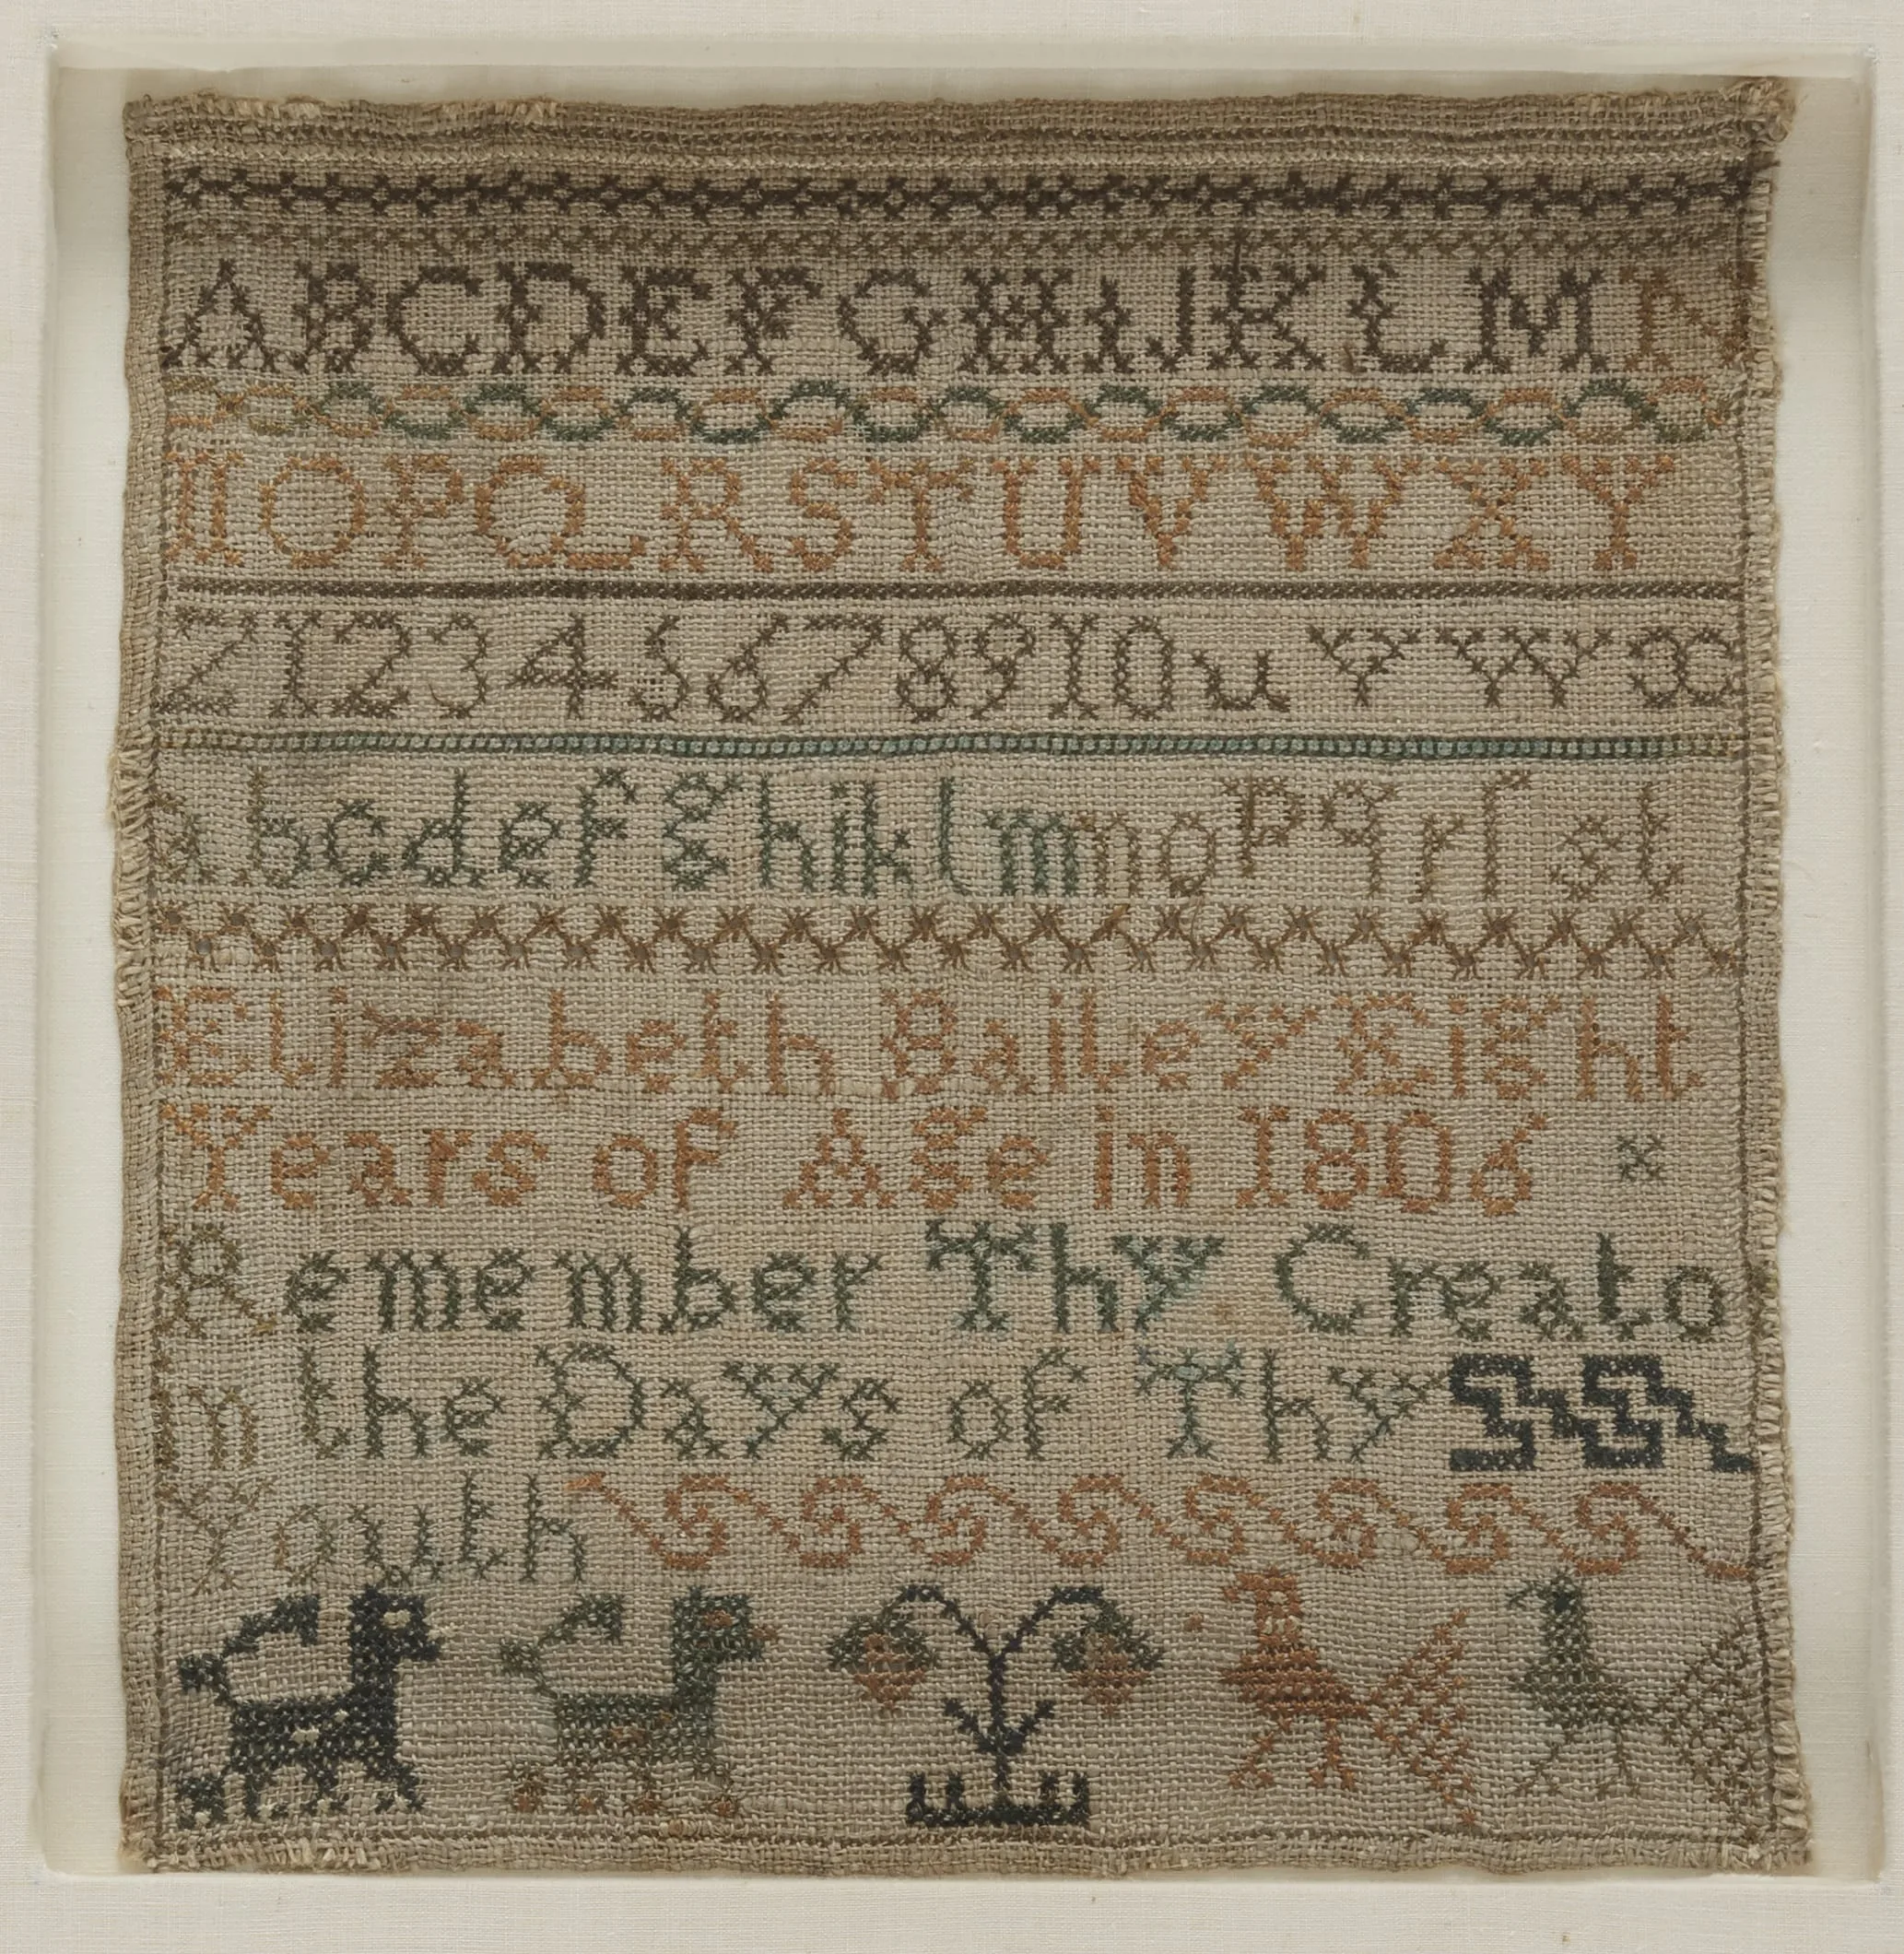 ABCDEFGHIJKLM N
NOPQRSTUVWXY
Z12345678910u Y W x
abcdefghiklmnopqrſst
Elizabeth Bailey Eight
Years of Age in 1806 x
Remember Thy Creato
In the Days of Thy
Youth